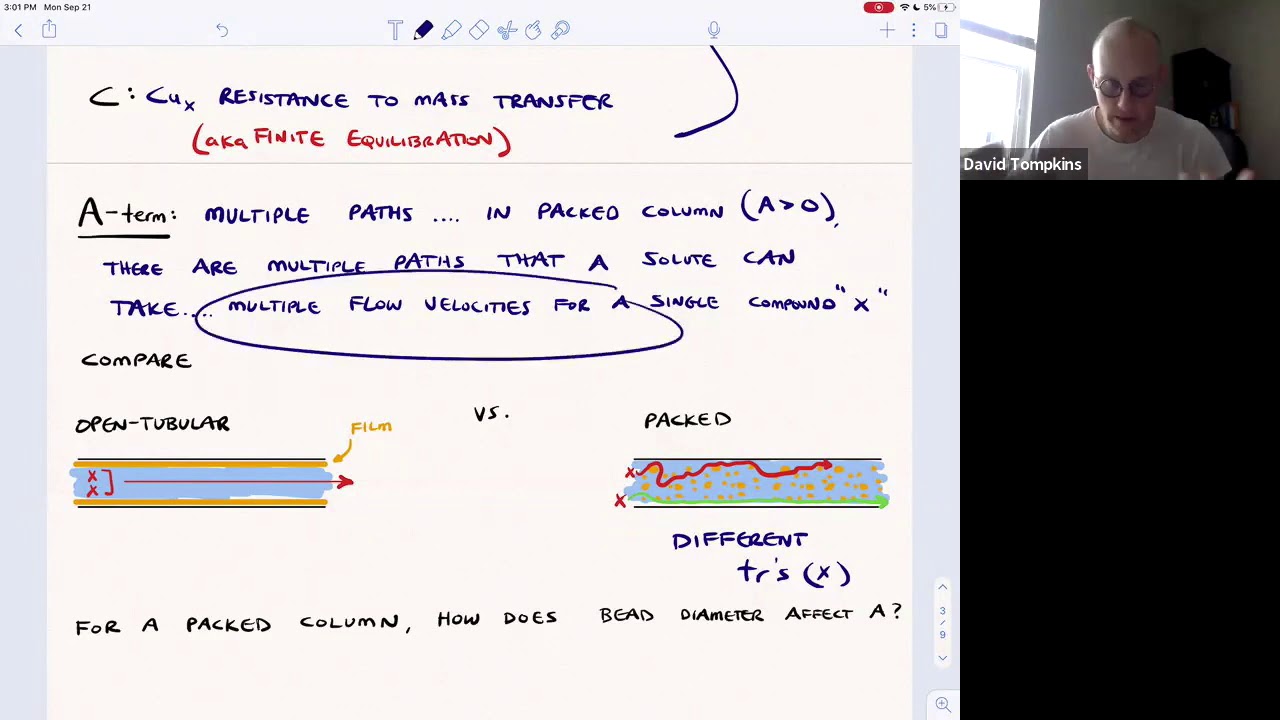 3:01 PM Mon Sep 21
5%
C: Cux RESISTANCE TO MASS TRANSFER
(aka FINITE EQUILIBRATION)
A-term: MULTIPLE PATHS .... IN PACKED COLUMN (A>0),
THERE ARE MULTIPLE PATHS THAT A SOLUTE CAN
TAKE.... MULTIPLE FLOW VELOCITIES FOR A SINGLE COMPOUND "X"
COMPARE
OPEN-TUBULAR VS. PACKED
FILM
X
X
X
X
DIFFERENT
tr's (X)
FOR A PACKED COLUMN, HOW DOES BEAD DIAMETER AFFECT A?
3
/
9
David Tompkins